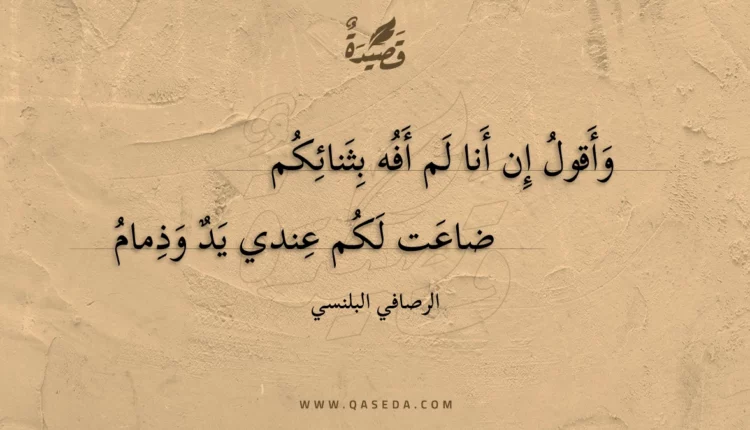 قَصِيدَةٌ
وَأَقولُ إِن أَنا لَم أَفُه بِثَنائِكُم
ضاعَت لَكُم عِندي يَدٌ وَذِمامُ
الرصافي البلنسي
WWW.QASEDA.COM